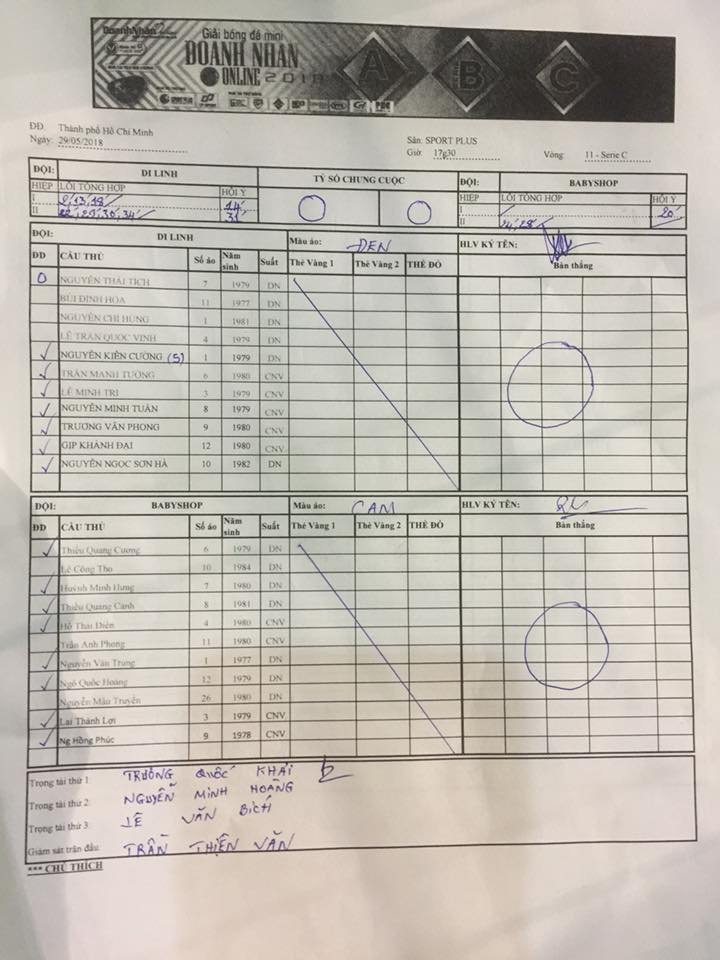 DoanhNhân
Giải bóng đá mini
DOANH NHÂN
ONLINE 2018
A
B
C
ĐĐ. Thành phố Hồ Chí Minh
Ngày: 29/05/2018
Sân: SPORT PLUS
Giờ: 17g30 Vòng: 11 - Serie C
ĐỘI: DI LINH TỶ SỐ CHUNG CUỘC ĐỘI: BABYSHOP
HIỆP LỖI TỔNG HỢP HỘI Ý O O HIỆP LỖI TỔNG HỢP HỘI Ý
I 13, 18' 14' I 20'
II 29, 30, 34' 31 II 24, 28
ĐỘI: DI LINH Màu áo: ĐEN HLV KÝ TÊN:
ĐD CẦU THỦ Số áo Năm sinh Suất Thẻ Vàng 1 Thẻ Vàng 2 THẺ ĐỎ Bàn thắng
O NGUYỄN THÁI TÍCH 7 1979 DN
BÙI ĐÌNH HÒA 11 1977 DN
NGUYỄN CHÍ HÙNG 1 1981 DN
LÊ TRẦN QUỐC VINH 4 1979 DN
✓ NGUYỄN KIÊN CƯỜNG (5) 1 1979 DN
✓ TRẦN MẠNH TƯỜNG 6 1980 CNV
✓ LÊ MINH TRÍ 3 1979 CNV
✓ NGUYỄN MINH TUẤN 8 1979 CNV
✓ TRƯƠNG VĂN PHONG 9 1980 CNV
✓ GIP KHÁNH ĐẠI 12 1980 CNV
✓ NGUYỄN NGỌC SƠN HÀ 10 1982 DN
ĐỘI: BABYSHOP Màu áo: CAM HLV KÝ TÊN:
ĐD CẦU THỦ Số áo Năm sinh Suất Thẻ Vàng 1 Thẻ Vàng 2 THẺ ĐỎ Bàn thắng
✓ Thiều Quang Cương 6 1979 DN
Lê Công Thọ 10 1984 DN
✓ Huỳnh Minh Hưng 7 1980 DN
✓ Thiều Quang Cảnh 8 1981 DN
✓ Hồ Thái Điền 4 1980 CNV
Trần Anh Phong 11 1980 CNV
✓ Nguyễn Văn Trung 1 1977 DN
✓ Ngô Quốc Hoàng 12 1979 DN
Nguyễn Mậu Truyền 26 1980 DN
✓ Lai Thành Lợi 3 1979 CNV
✓ Ng Hồng Phúc 9 1978 CNV
Trọng tài thứ 1: TRƯƠNG QUỐC KHẢI
Trọng tài thứ 2: NGUYỄN MINH HOÀNG
Trọng tài thứ 3: LÊ VĂN BÍCH
Giám sát trận đấu: TRẦN THIỆN VĂN
*** CHÚ THÍCH